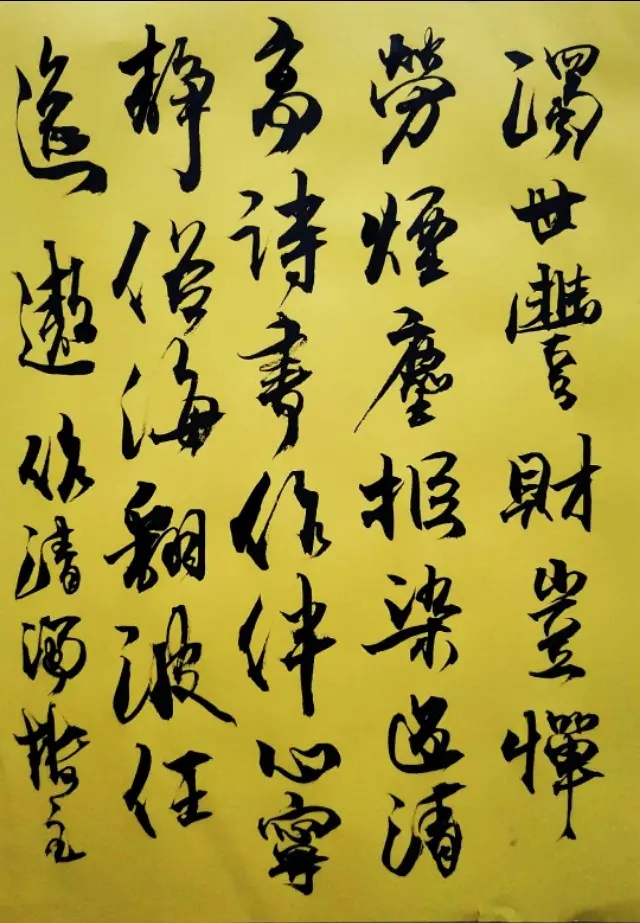 濁世豐財豈憚
勞煙塵拒染清
高詩書作伴心寧
靜俗海翻波任
遙遨作清濁